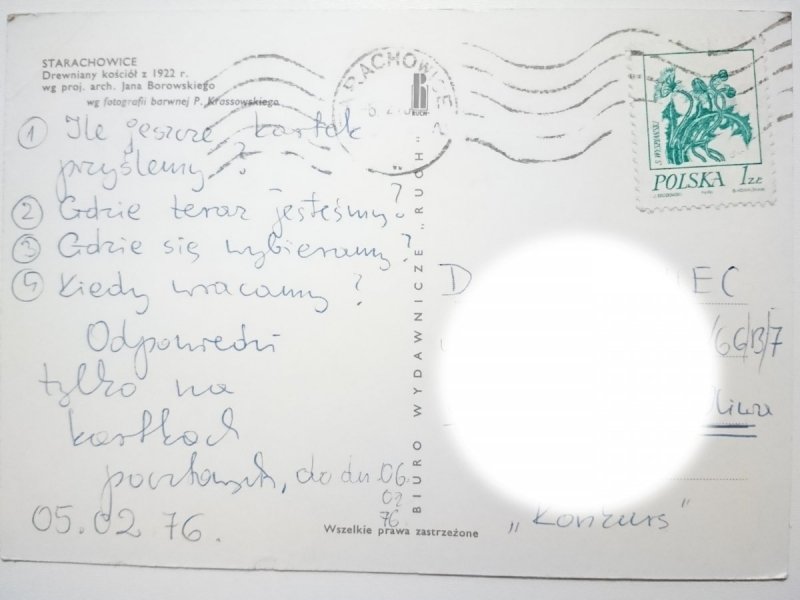 STARACHOWICE
Drewniany kościół z 1922 r.
wg proj. arch. Jana Borowskiego
wg fotografii barwnej P. Krassowskiego
1 Ile jeszcze kartek
przyślemy?
2 Gdzie teraz jesteśmy?
3 Gdzie się wybieramy?
4 Kiedy wracamy?
Odpowiedzi
tylko na
kartkach
pocztowych, do dn 06.
02
76.
05.02 76.
BIURO WYDAWNICZE „RUCH"
RUCH
Wszelkie prawa zastrzeżone
ARACHOWICE
S. WYSPIAŃSKI
POLSKA 1 ZŁ
D
IEC
/6G/B/7
liwa
„Konkurs"